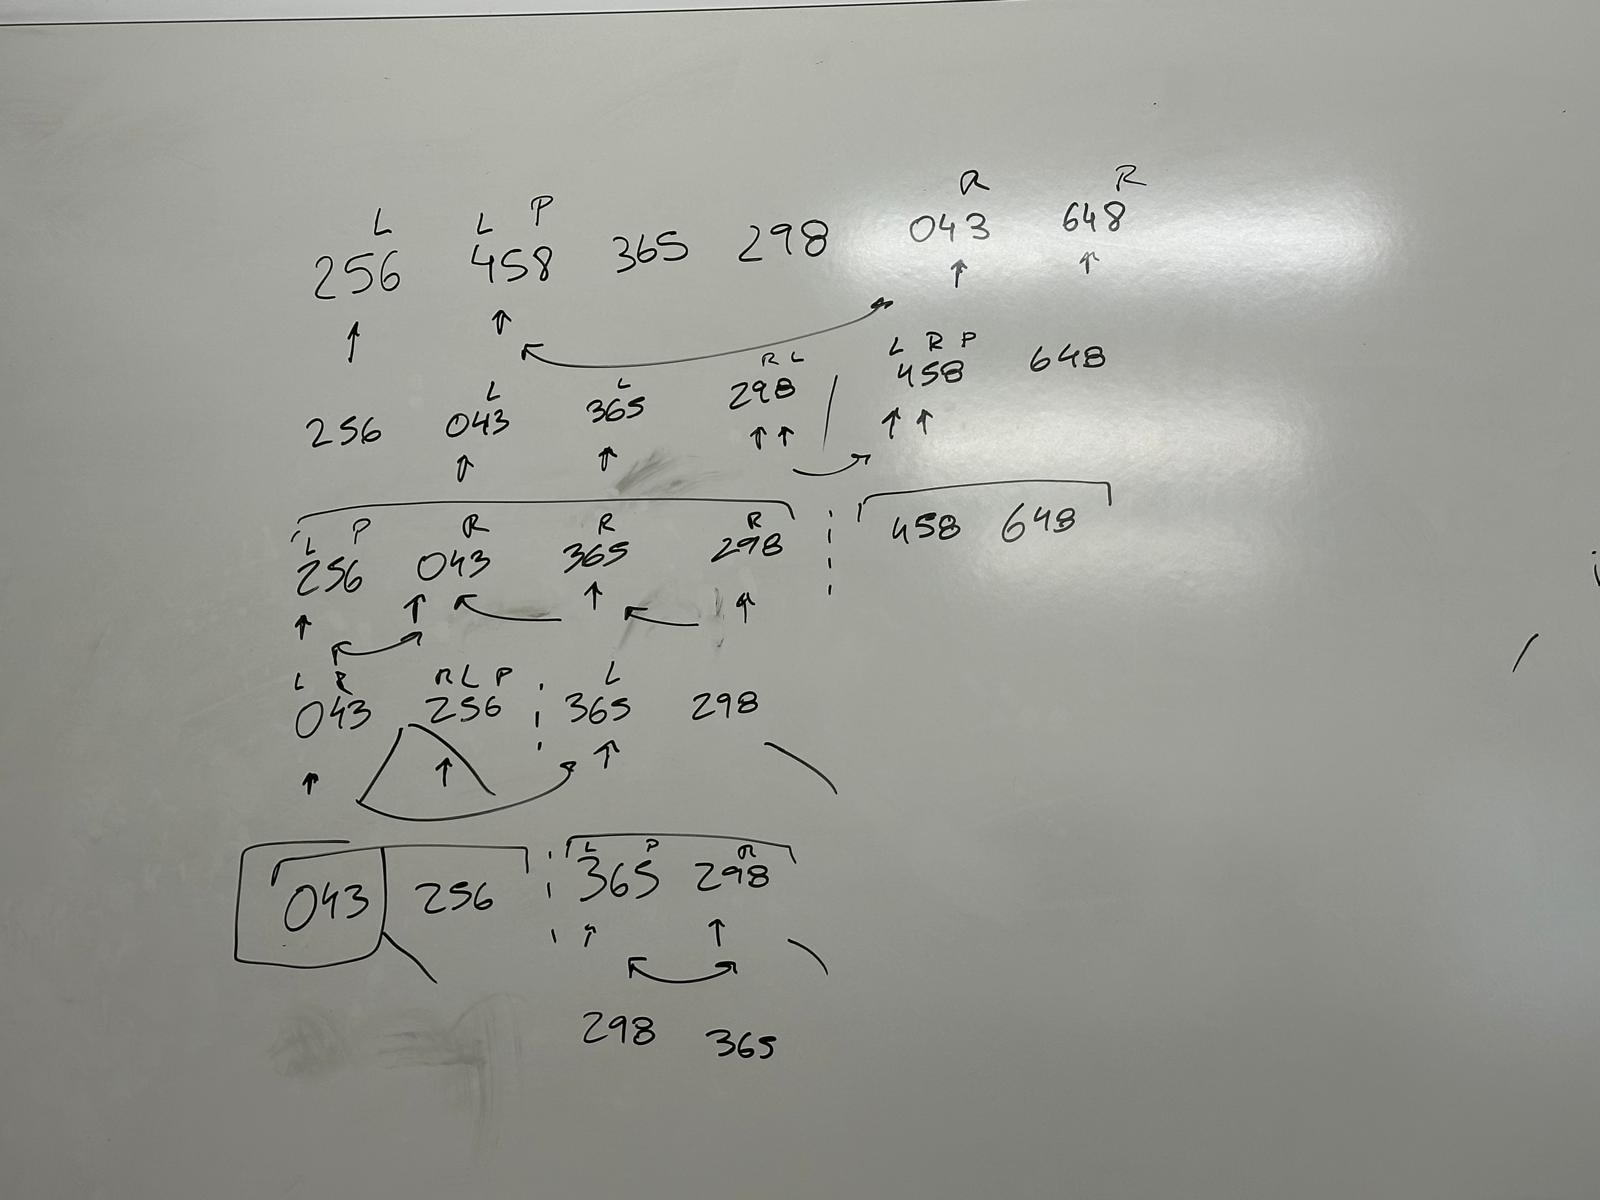 L L P R R
256 458 365 298 043 648
L L R L L R P
256 043 365 298 458 648
L P R R R
256 043 365 298 458 648
L R R L P L
043 256 365 298
L P R
043 256 365 298
298 365